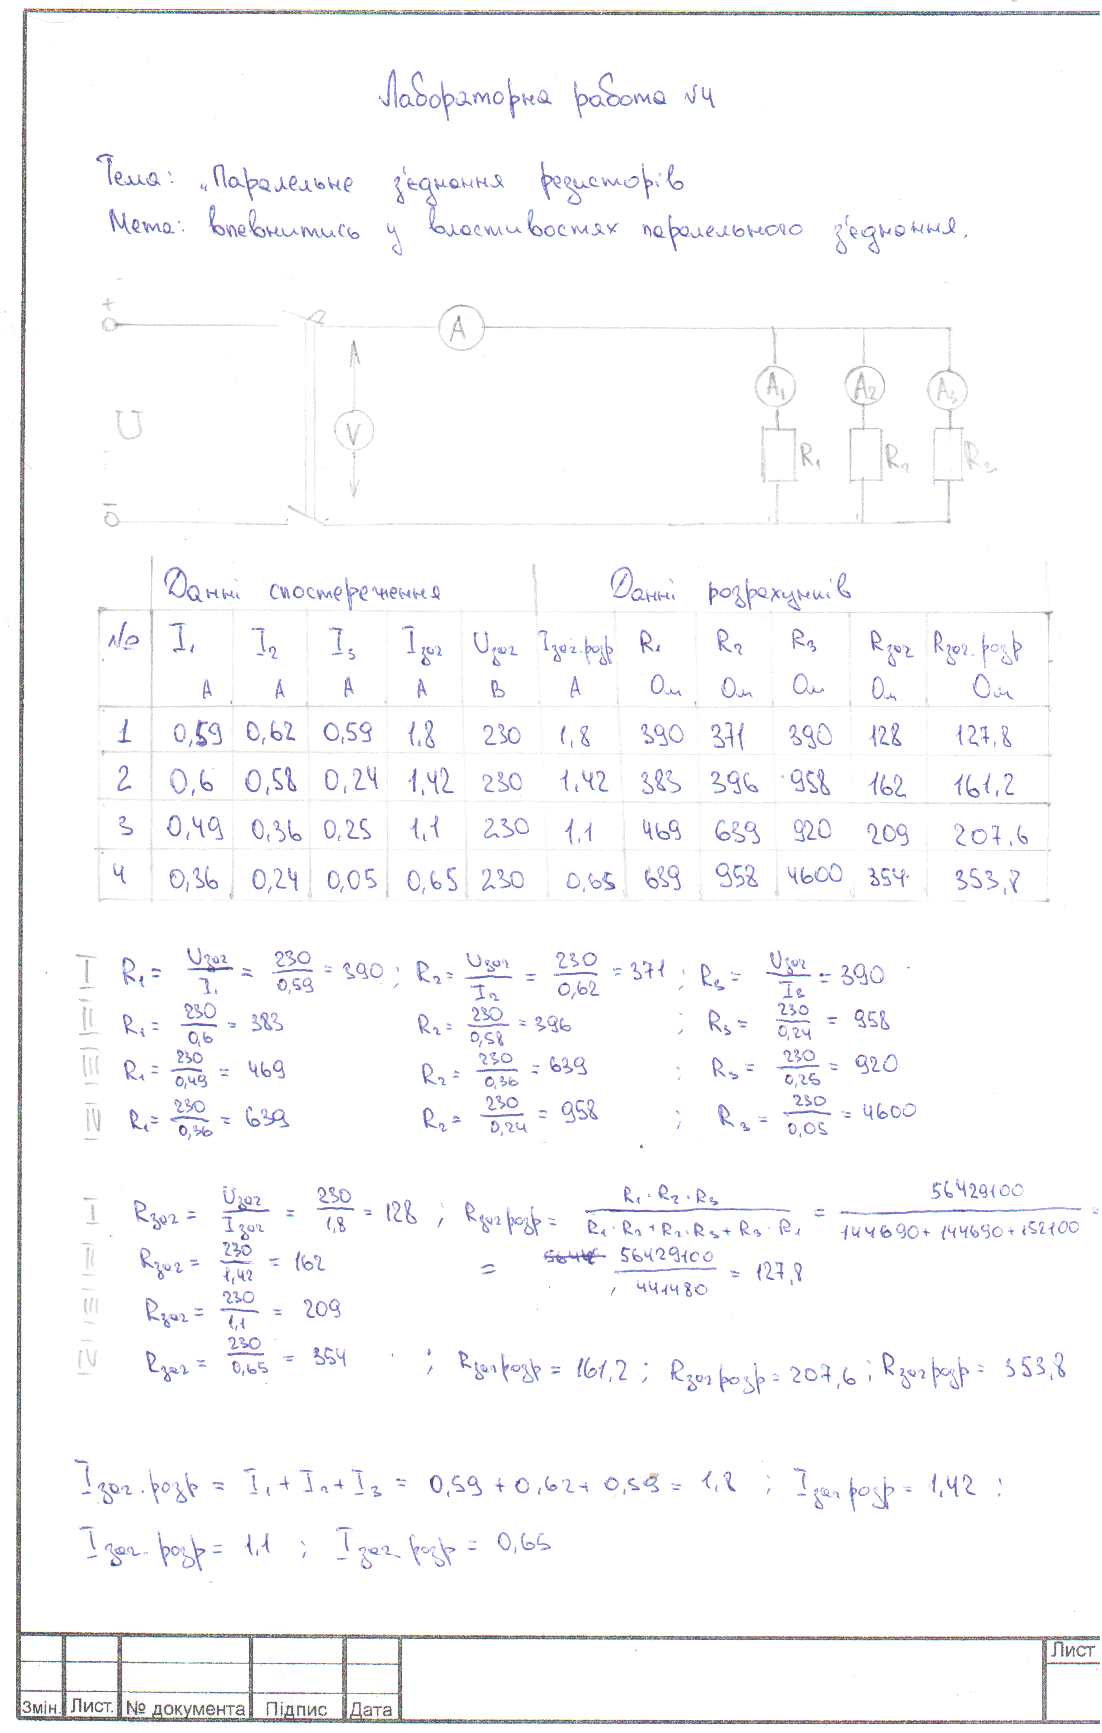 Лабораторна работа №4
Тема: „Паралельне з'єднання резисторів
Мета: впевнитись у властивостях паралельного з'єднання.
+
A
A₁ A₂ A₃
U
V
R₁ R₂ R₃
−
Данні спостереження Данні розрахунків
№ I₁ I₂ I₃ Iзаг Uзаг Iзаг.розр R₁ R₂ R₃ Rзаг Rзаг.розр
А А А А В А Ом Ом Ом Ом Ом
1 0,59 0,62 0,59 1,8 230 1,8 390 371 390 128 127,8
2 0,6 0,58 0,24 1,42 230 1,42 383 396 958 162 161,2
3 0,49 0,36 0,25 1,1 230 1,1 469 639 920 209 207,6
4 0,36 0,24 0,05 0,65 230 0,65 639 958 4600 354 353,8
I R₁ = Uзаг/I₁ = 230/0,59 = 390 ; R₂ = Uзаг/I₂ = 230/0,62 = 371 ; R₃ = Uзаг/I₃ = 390
II R₁ = 230/0,6 = 383 R₂ = 230/0,58 = 396 ; R₃ = 230/0,24 = 958
III R₁ = 230/0,49 = 469 R₂ = 230/0,36 = 639 ; R₃ = 230/0,25 = 920
IV R₁ = 230/0,36 = 639 R₂ = 230/0,24 = 958 ; R₃ = 230/0,05 = 4600
I Rзаг = Uзаг/Iзаг = 230/1,8 = 128 ; Rзаг розр = R₁·R₂·R₃/R₁·R₂+R₂·R₃+R₃·R₁ = 56429100/144690+144690+152100 =
II Rзаг = 230/1,42 = 162 = 56429100/441480 = 127,8
III Rзаг = 230/1,1 = 209
IV Rзаг = 230/0,65 = 354 ; Rзаг розр = 161,2 ; Rзаг розр = 207,6 ; Rзаг розр = 353,8
Iзаг.розр = I₁ + I₂ + I₃ = 0,59 + 0,62 + 0,59 = 1,8 ; Iзаг розр = 1,42 ;
Iзаг.розр = 1,1 ; Iзаг розр = 0,65
Лист
Змін. Лист. № документа Підпис Дата